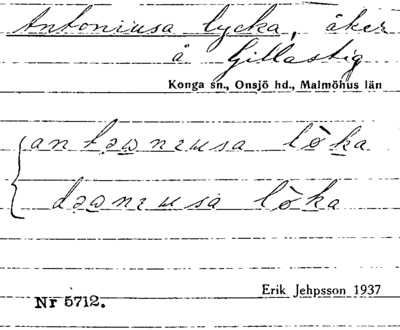 Antoniusa lycka, åker
å Gillastig
Konga sn., Onsjö hd., Malmöhus län
antəωnɪusa lòka
dəωnɪusa lòka
Erik Jehpsson 1937
Nr 5712.